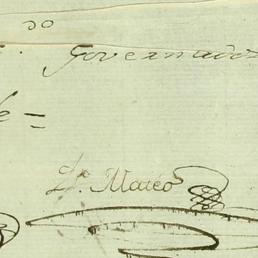 do
Governador
de =
Dr. Mateo